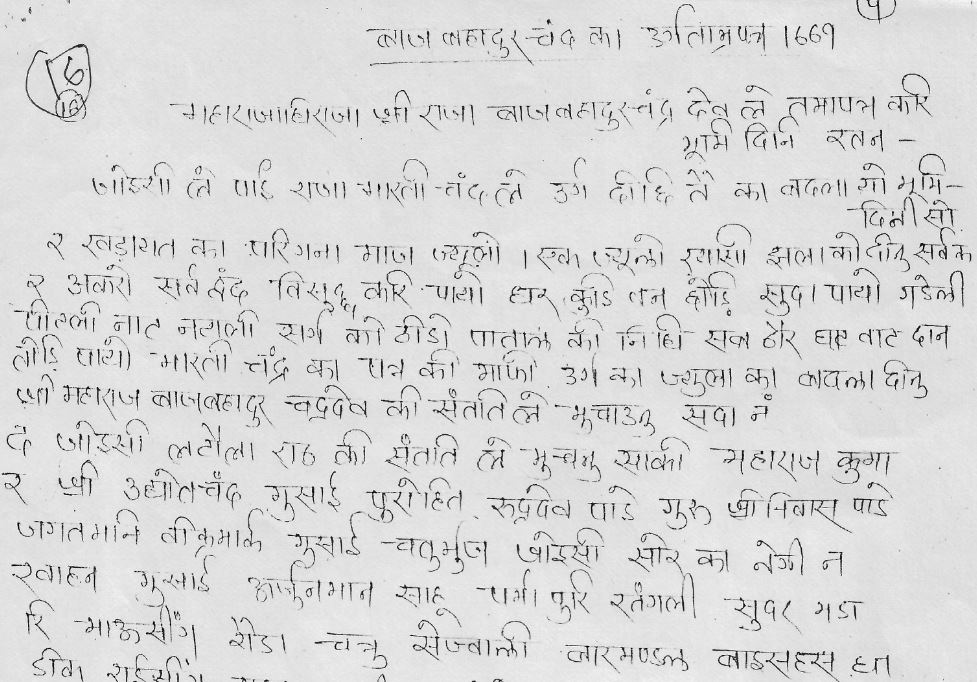 ५
बाज बहादुर चंद का ताम्रपत्र 1669
16
महाराजाधिराजा श्री राजा बाजबहादुरचंद्र देव ले तमापत्र करि
भूमि दिनि रतन –
जोइसी ले पाइ राजा भारती चंद ले उर्ग दीहि तै का बदला गो भूमि –
दिनी सो
र खड़ायत का परिगना माज ज्यूलो । एक ज्यूलो झला को दीनु सर्वक
र अकरो सर्व विसुद्ध करि पायो कुडि सुदा पायो गडेली
पोखरी सर्ग को ढीडो पाताल की निधि सब ठौर घट वाट दान
तोडि पायो भारती चंद्र का पत्र की उर्ग का ज्यूला का बादला दीनु
श्री महाराज बाजबहादुर चद्रदेव की संतति ले भुचाउनु सदा नं
द जोइसी लटौला राठ की संतति ले भुचनु साकी महाराज कुमा
र श्री उद्योतचंद गुसाई पुरोहित रुद्रदेव पाडे गुरु श्रीनिवास पाडे
जगतमनि वीक्रमार्क गुसाई चतुर्भुज जोइसी सोर का नेगी न
रवाहन गुसाई अर्जुनमान साहू पुरि सुदर भडा
रि भाऊसींग रौडा चत्रु सेज्वाली बारमण्डल बाइसहस